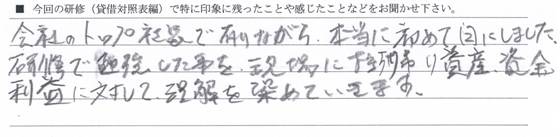 ■ 今回の研修（貸借対照表編）で特に印象に残ったことや感じたことなどをお聞かせ下さい。
会社のトップ社員で有りながら、本当に初めて目にしました。
研修で勉強した事を、現場に持ち帰り資産、資金、
利益に対して理解を深めていきます。